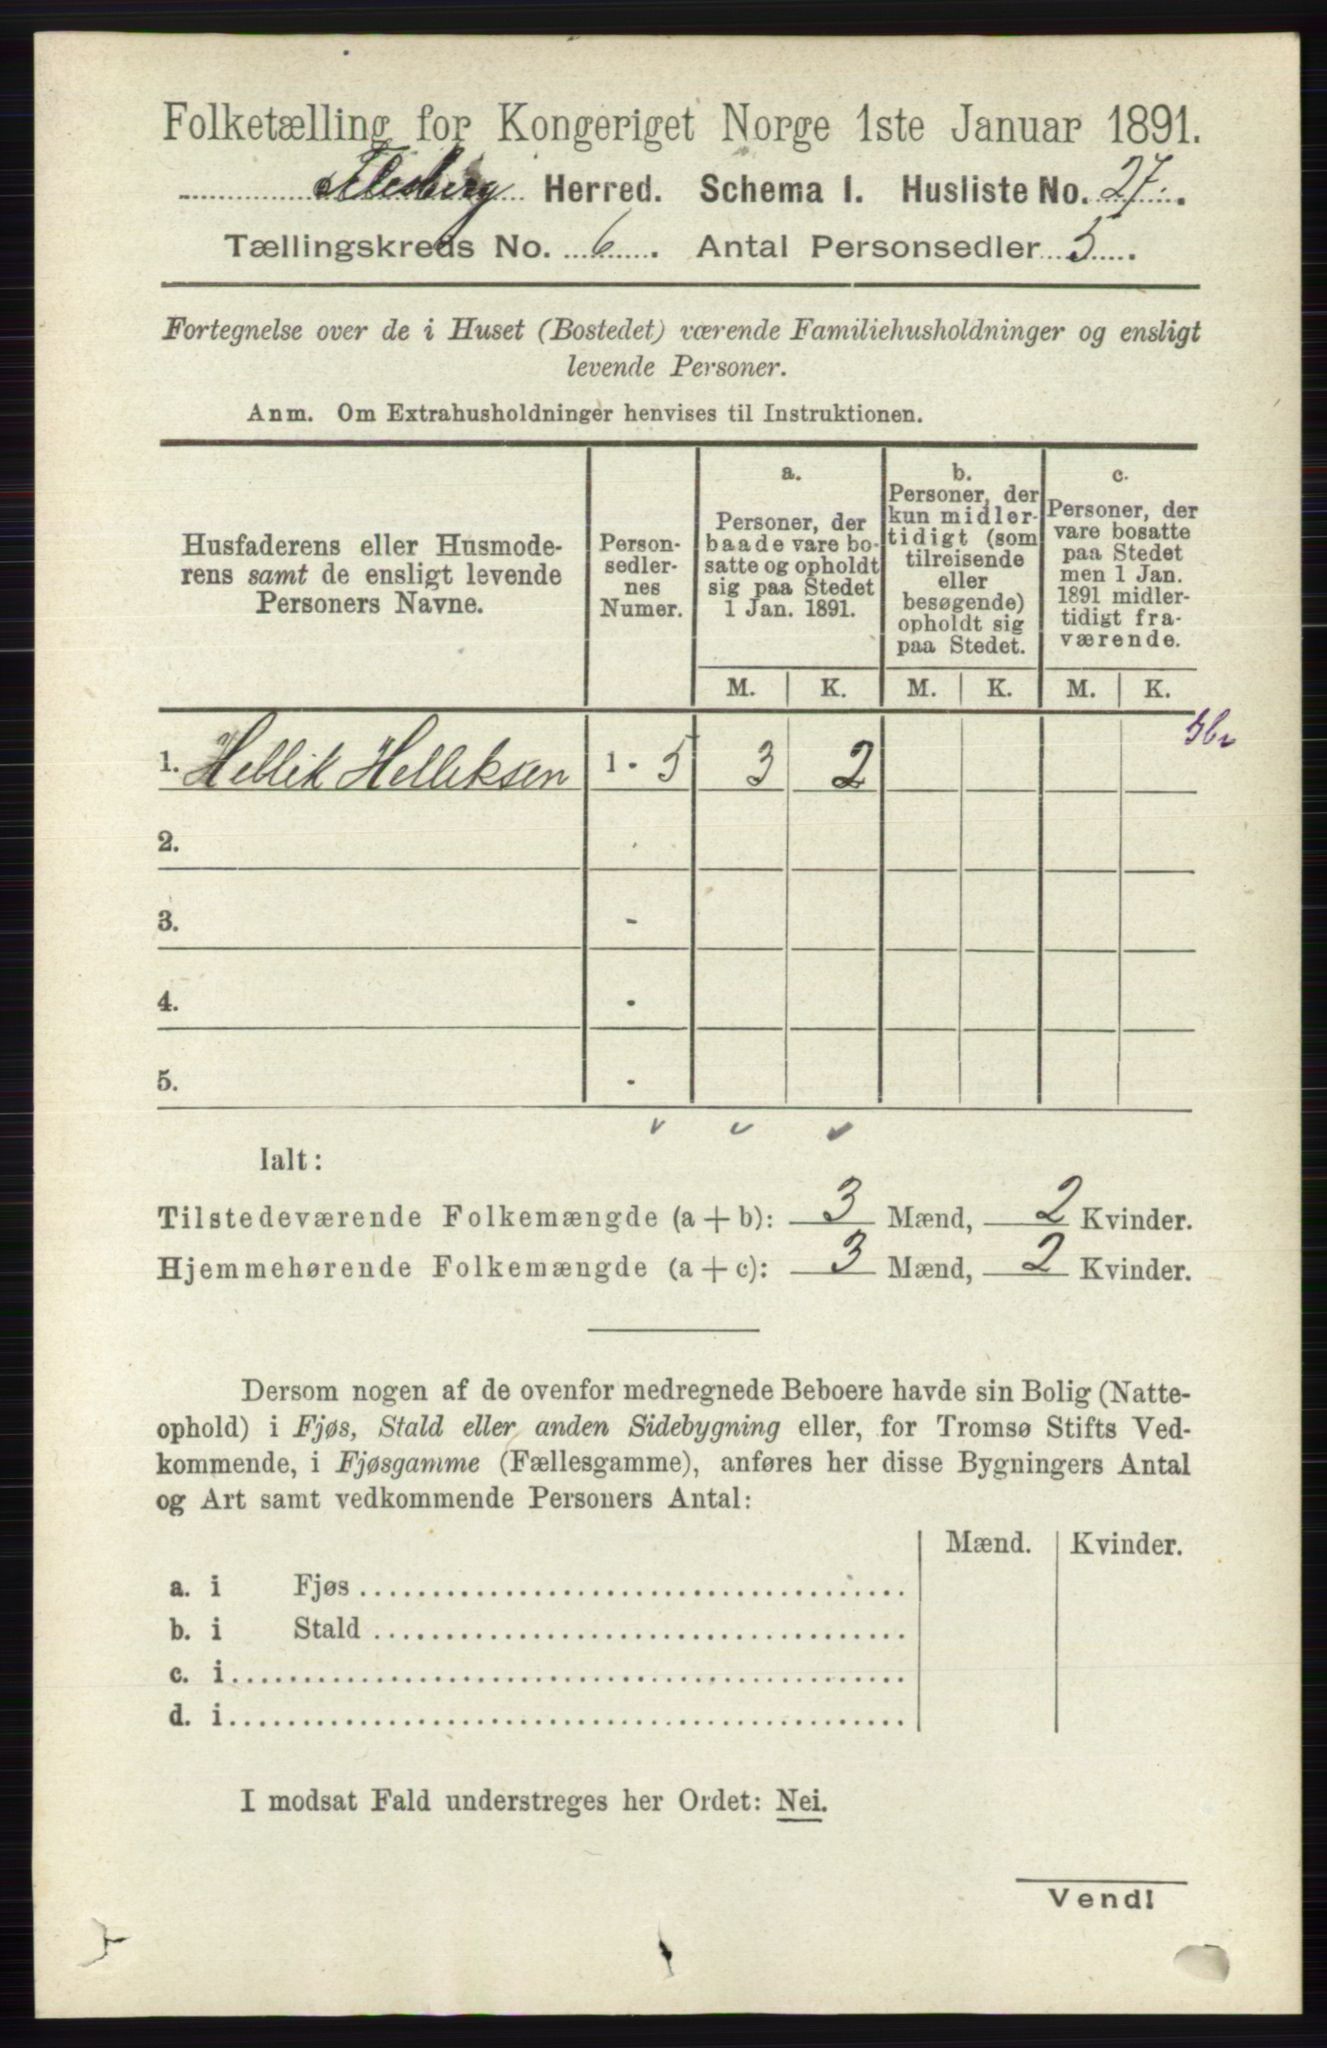 Folketælling for Kongeriget Norge 1ste Januar 1891.
Flesberg Herred. Schema 1. Husliste No. 27.
Tællingskreds No. 6. Antal Personsedler 5.
Fortegnelse over de i Huset (Bostedet) værende Familiehusholdninger og ensligt
levende Personer.
Anm. Om Extrahusholdninger henvises til Instruktionen.
Husfaderens eller Husmode-
rens samt de ensligt levende
Personers Navne.
Person-
sedler-
nes
Numer.
a.
Personer, der
baade vare bo-
satte og opholdt
sig paa Stedet
1 Jan. 1891.
b.
Personer, der
kun midler-
tidigt (som
tilreisende
eller
besøgende)
opholdt sig
paa Stedet.
c.
Personer, der
vare bosatte
paa Stedet
men 1 Jan.
1891 midler-
tidigt fra-
værende.
M. K. M. K. M. K.
1. Hellik Helliksen 1 - 5 3 2
2.
3. -
4. -
5. -
Ialt:
Tilstedeværende Folkemængde (a + b): 3 Mænd, 2 Kvinder.
Hjemmehørende Folkemængde (a + c): 3 Mænd, 2 Kvinder.
Dersom nogen af de ovenfor medregnede Beboere havde sin Bolig (Natte-
ophold) i Fjøs, Stald eller anden Sidebygning eller, for Tromsø Stifts Ved-
kommende, i Fjøsgamme (Fællesgamme), anføres her disse Bygningers Antal
og Art samt vedkommende Personers Antal:
Mænd. Kvinder.
a. i Fjøs
b. i Stald
c. i
d. i
I modsat Fald understreges her Ordet: Nei.
Vend!